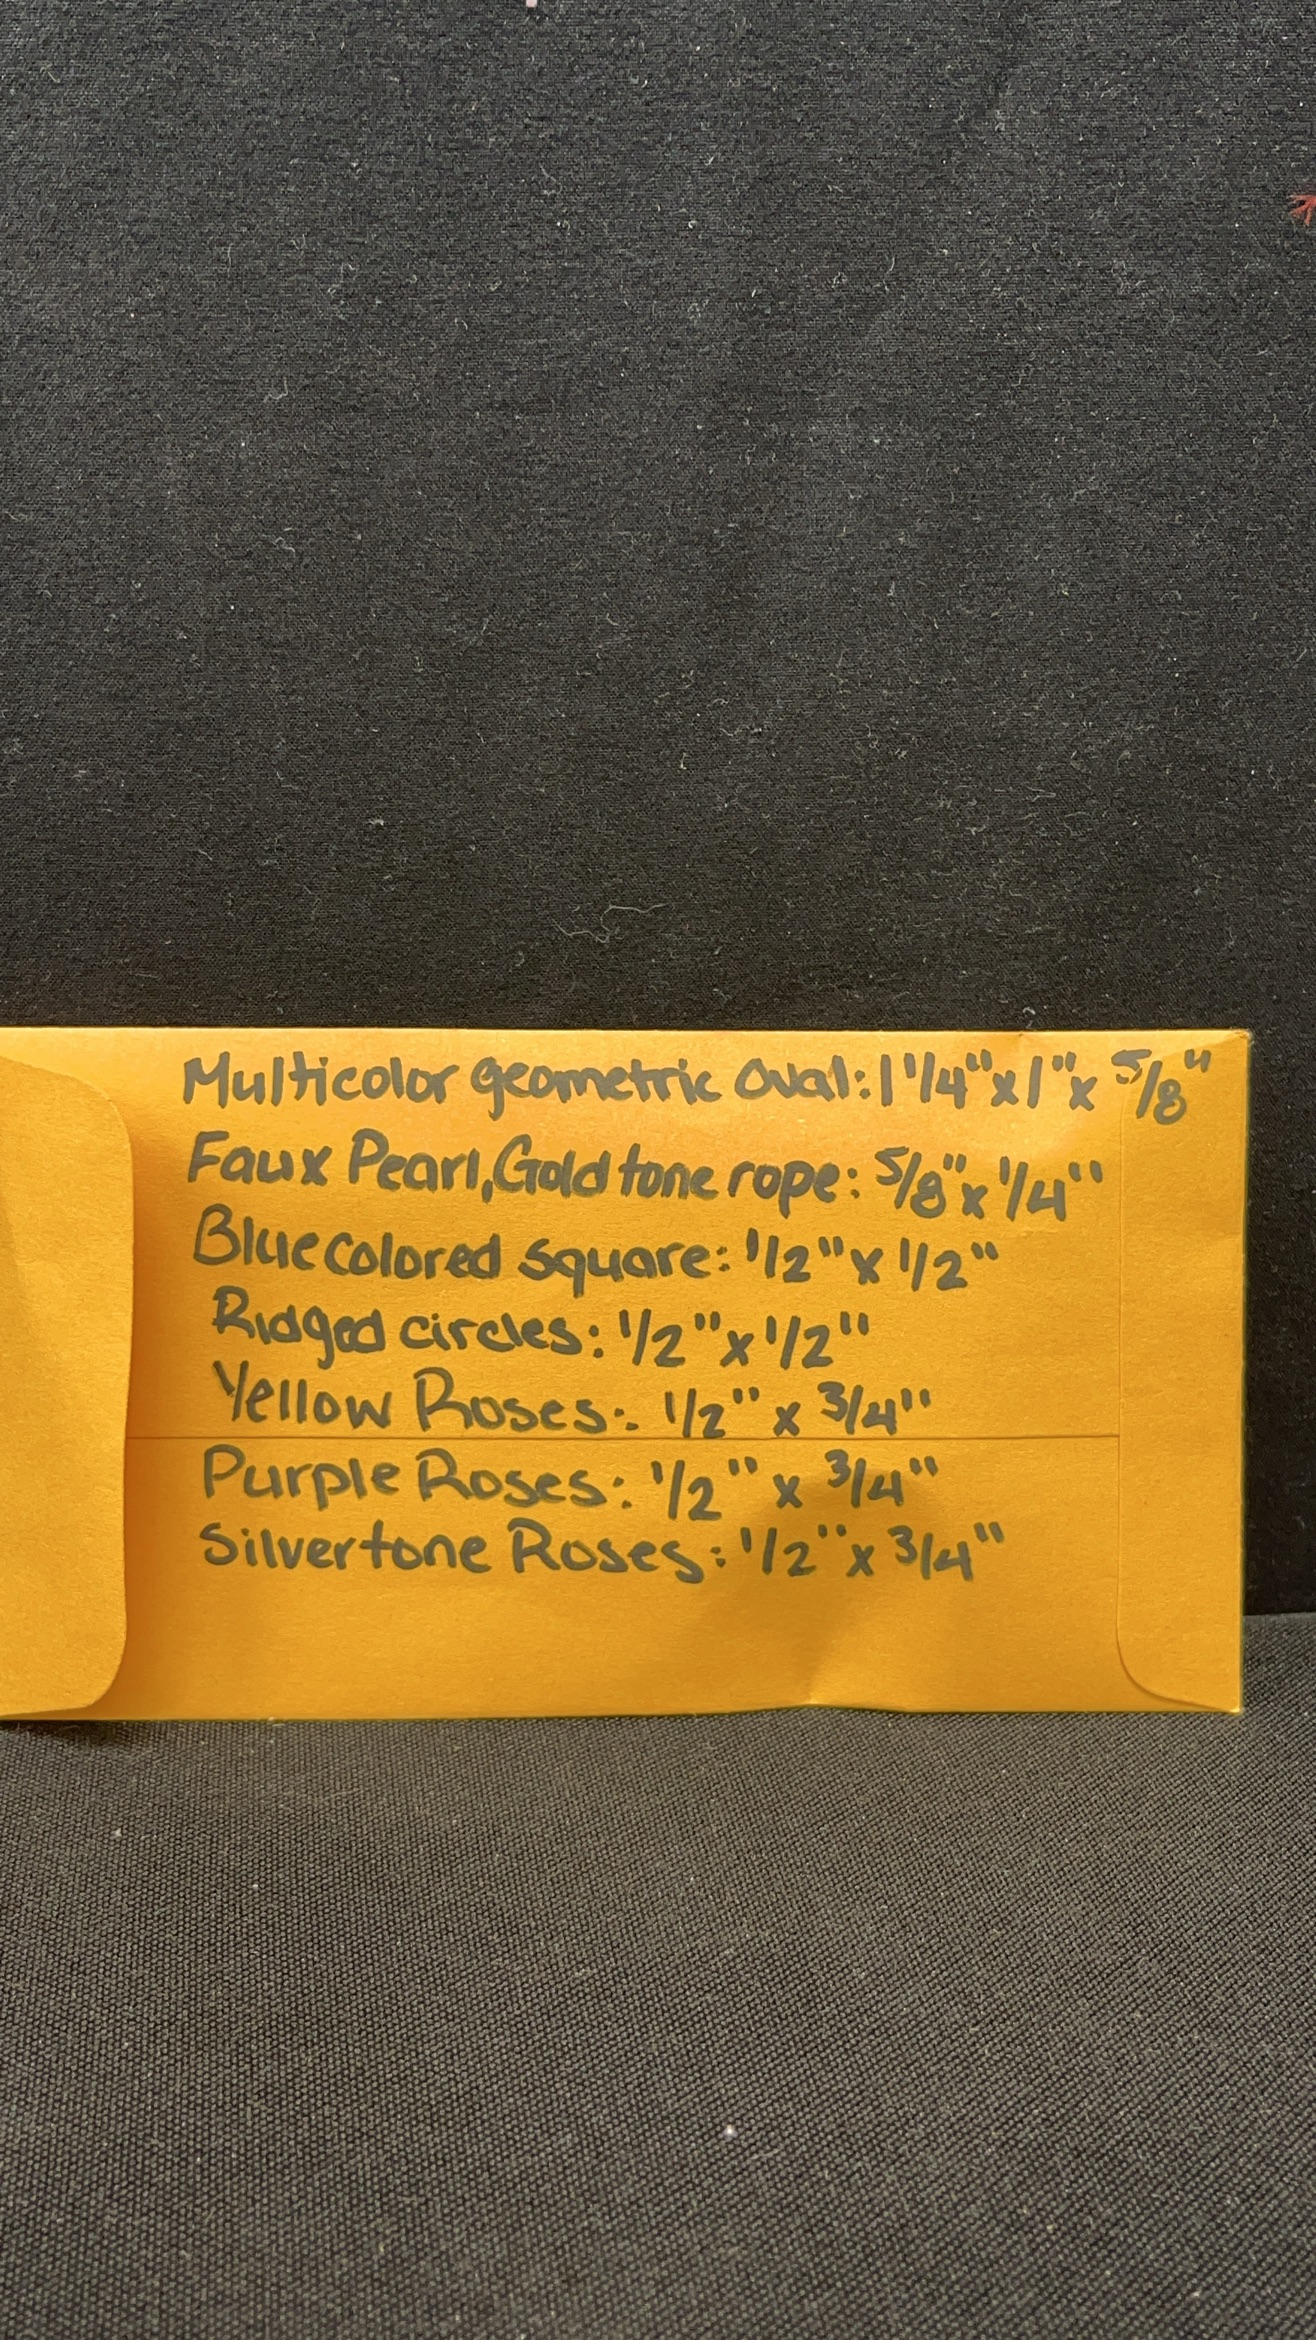 Multicolor geometric Oval: 1 1/4" x 1" x 5/8"
Faux Pearl, Gold tone rope: 5/8" x 1/4"
Blue colored square: 1/2" x 1/2"
Ridged circles: 1/2" x 1/2"
Yellow Roses: 1/2" x 3/4"
Purple Roses: 1/2" x 3/4"
Silvertone Roses: 1/2" x 3/4"